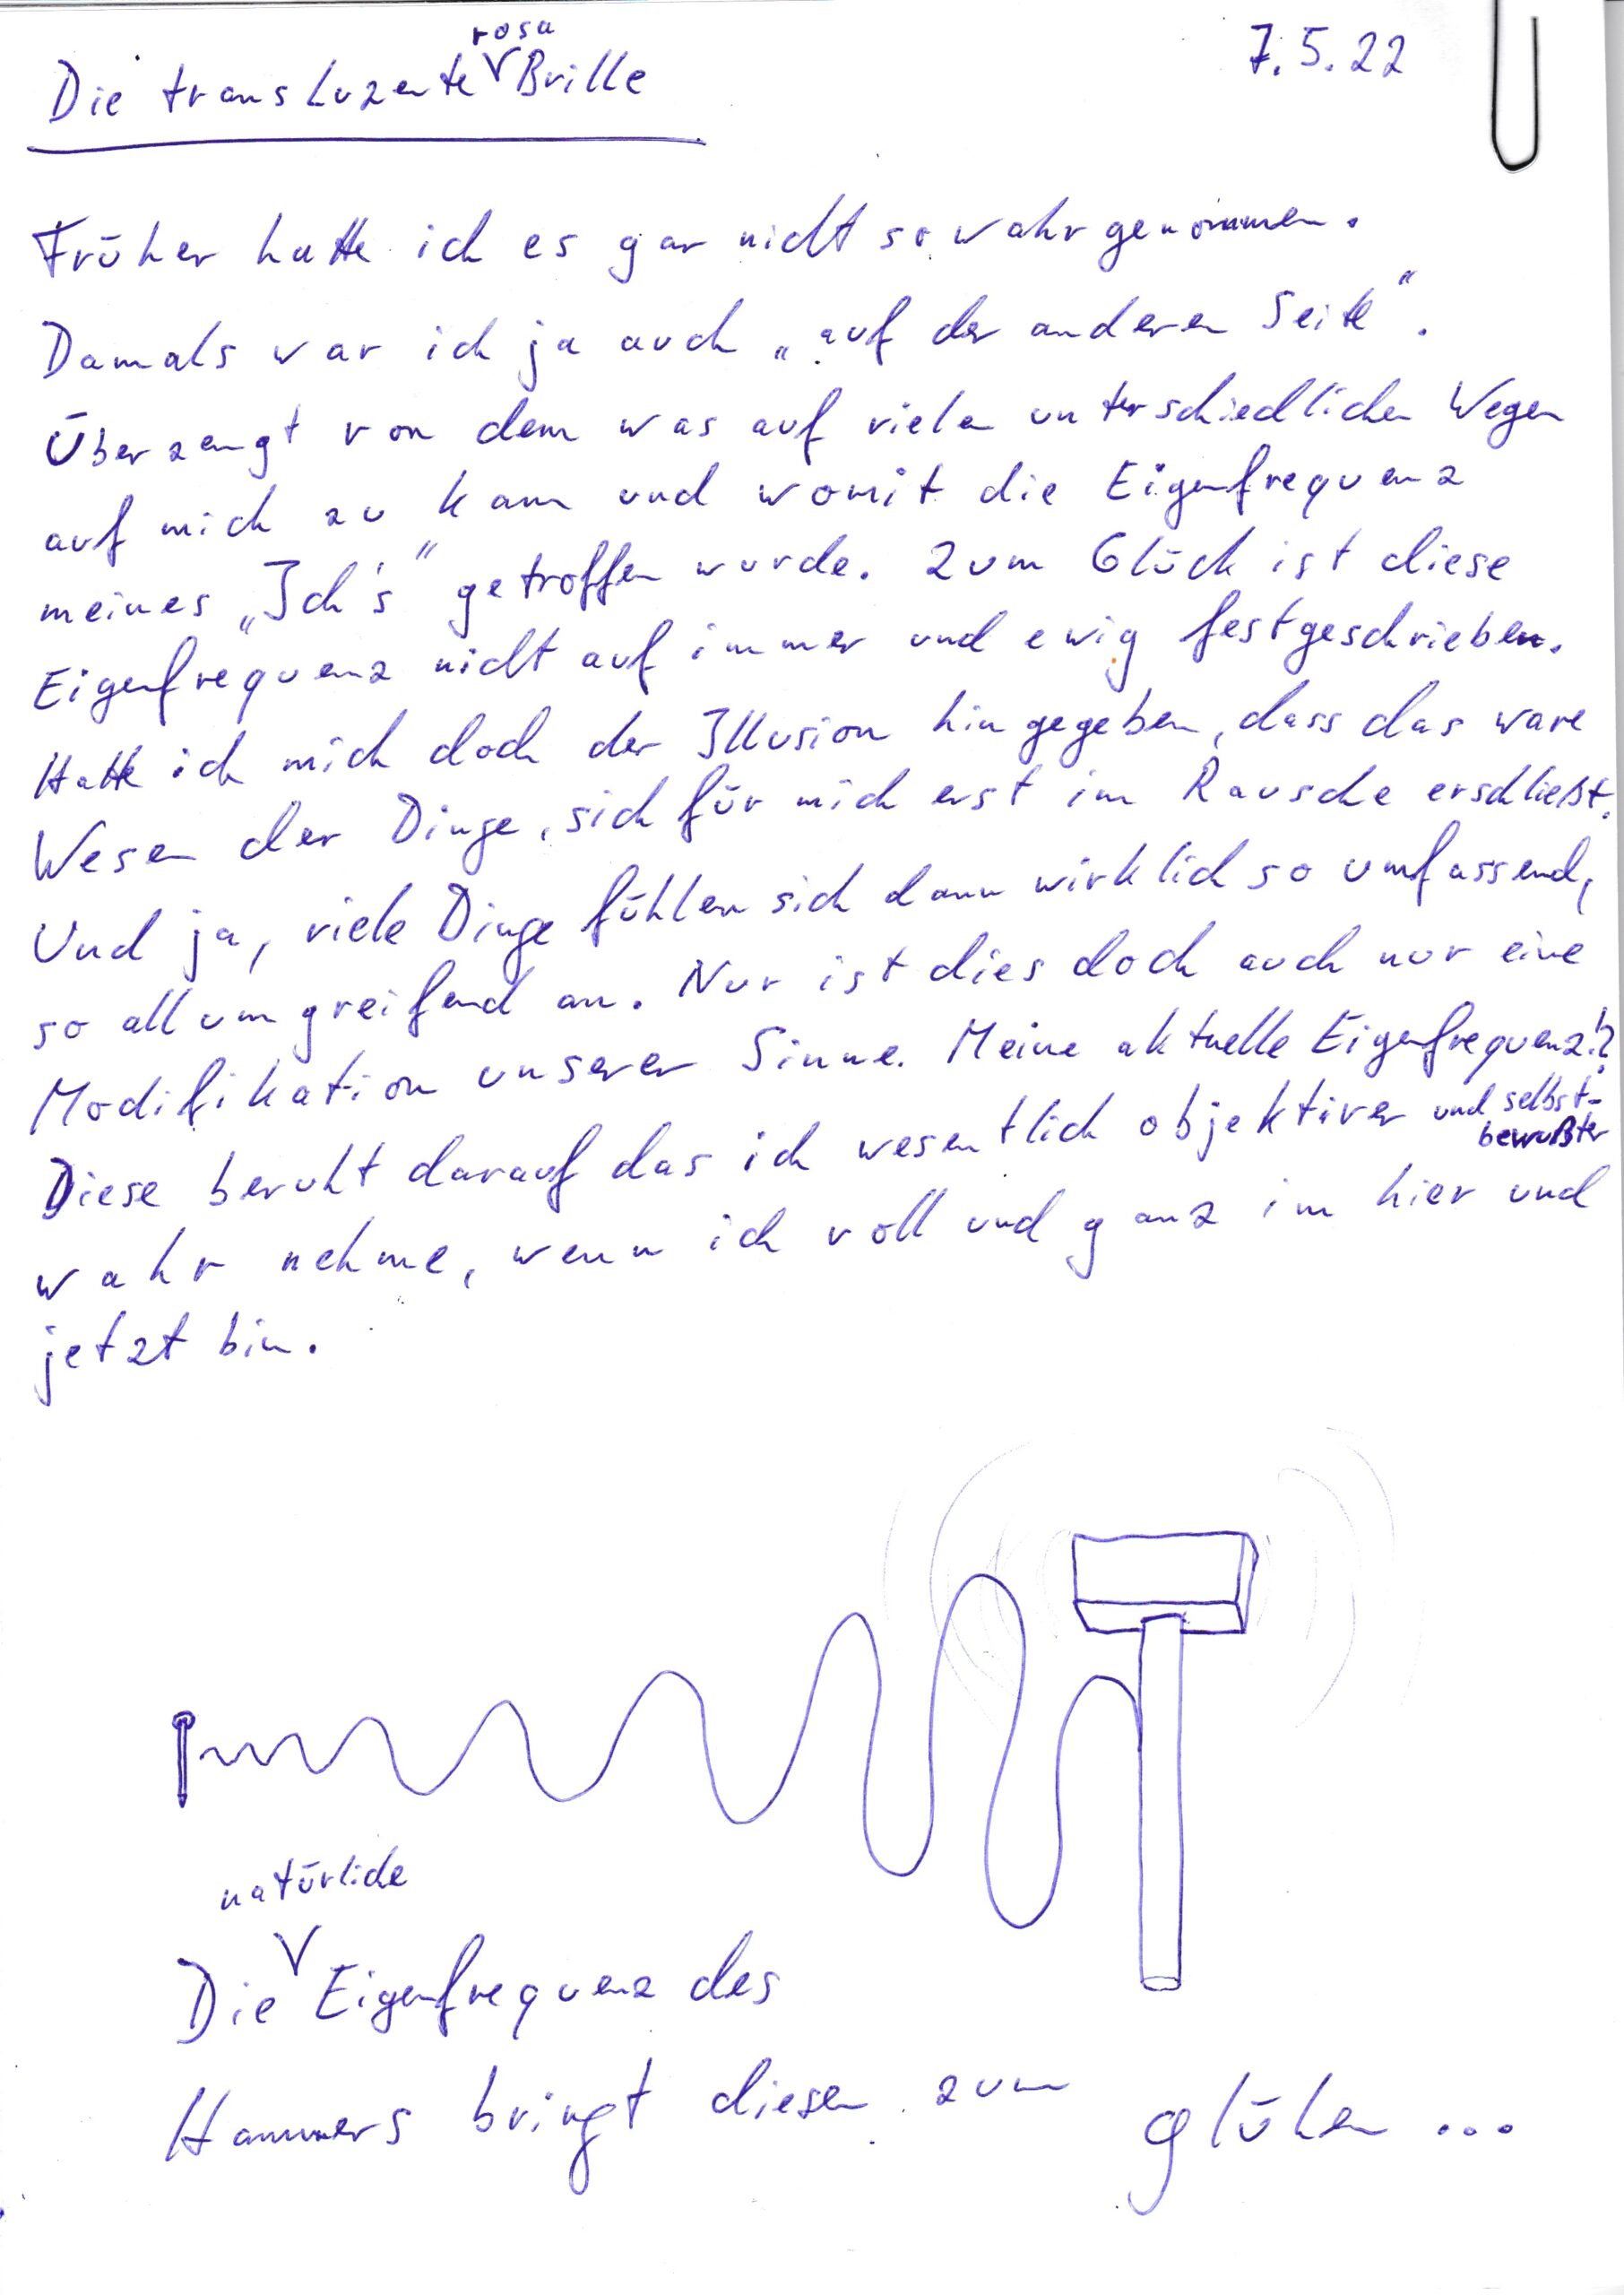 Die transluzente rosa Brille
7.5.22
Früher hatte ich es gar nicht so wahrgenommen.
Damals war ich ja auch „auf der anderen Seite".
Überzeugt von dem was auf vielen unterschiedlichen Wegen
auf mich zu kam und womit die Eigenfrequenz
meines „Ich's" getroffen wurde. Zum Glück ist diese
Eigenfrequenz nicht auf immer und ewig festgeschrieben.
Hatte ich mich doch der Illusion hingegeben, dass das ware
Wesen der Dinge, sich für mich erst im Rausche erschließt.
Und ja, viele Dinge fühlen sich dann wirklich so umfassend,
so allumgreifend an. Nur ist dies doch auch nur eine
Modifikation unserer Sinne. Meine aktuelle Eigenfrequenz!?
Diese beruht darauf das ich wesentlich objektiver und selbst-
bewußter
wahr nehme, wenn ich voll und ganz im hier und
jetzt bin.
natürliche
Die Eigenfrequenz des
Hammers bringt diesen zum glühen ...